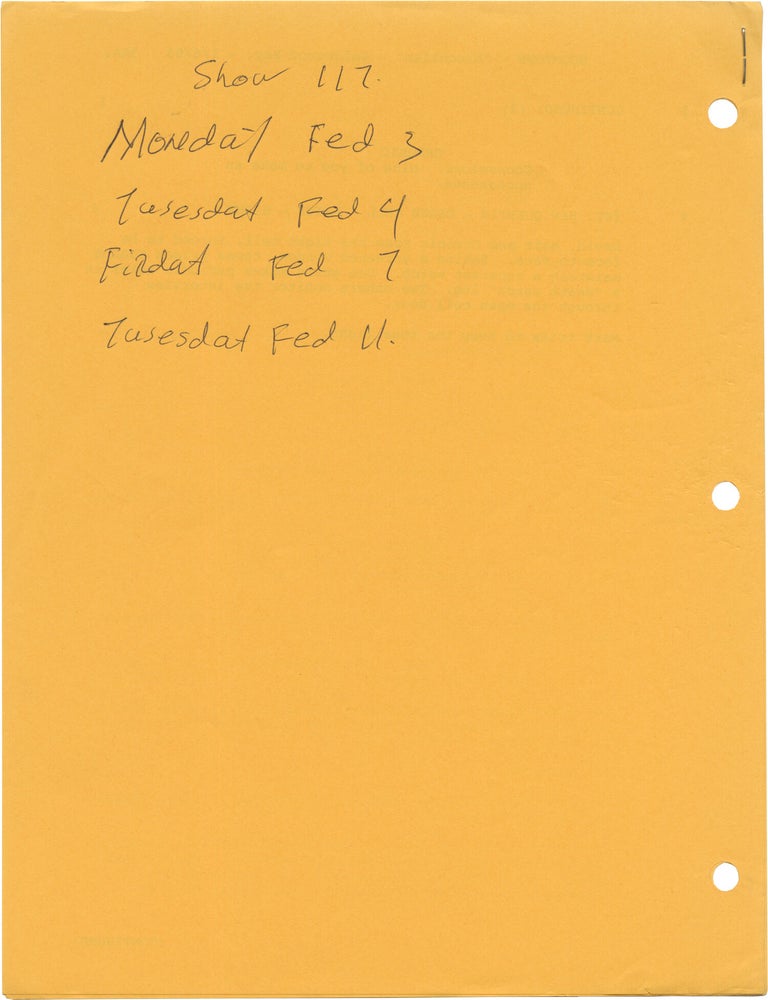 Show 117.
Moneday Fed 3
Tusesdat Fed 4
Firdat Fed 7
Tusesdat Fed 11.